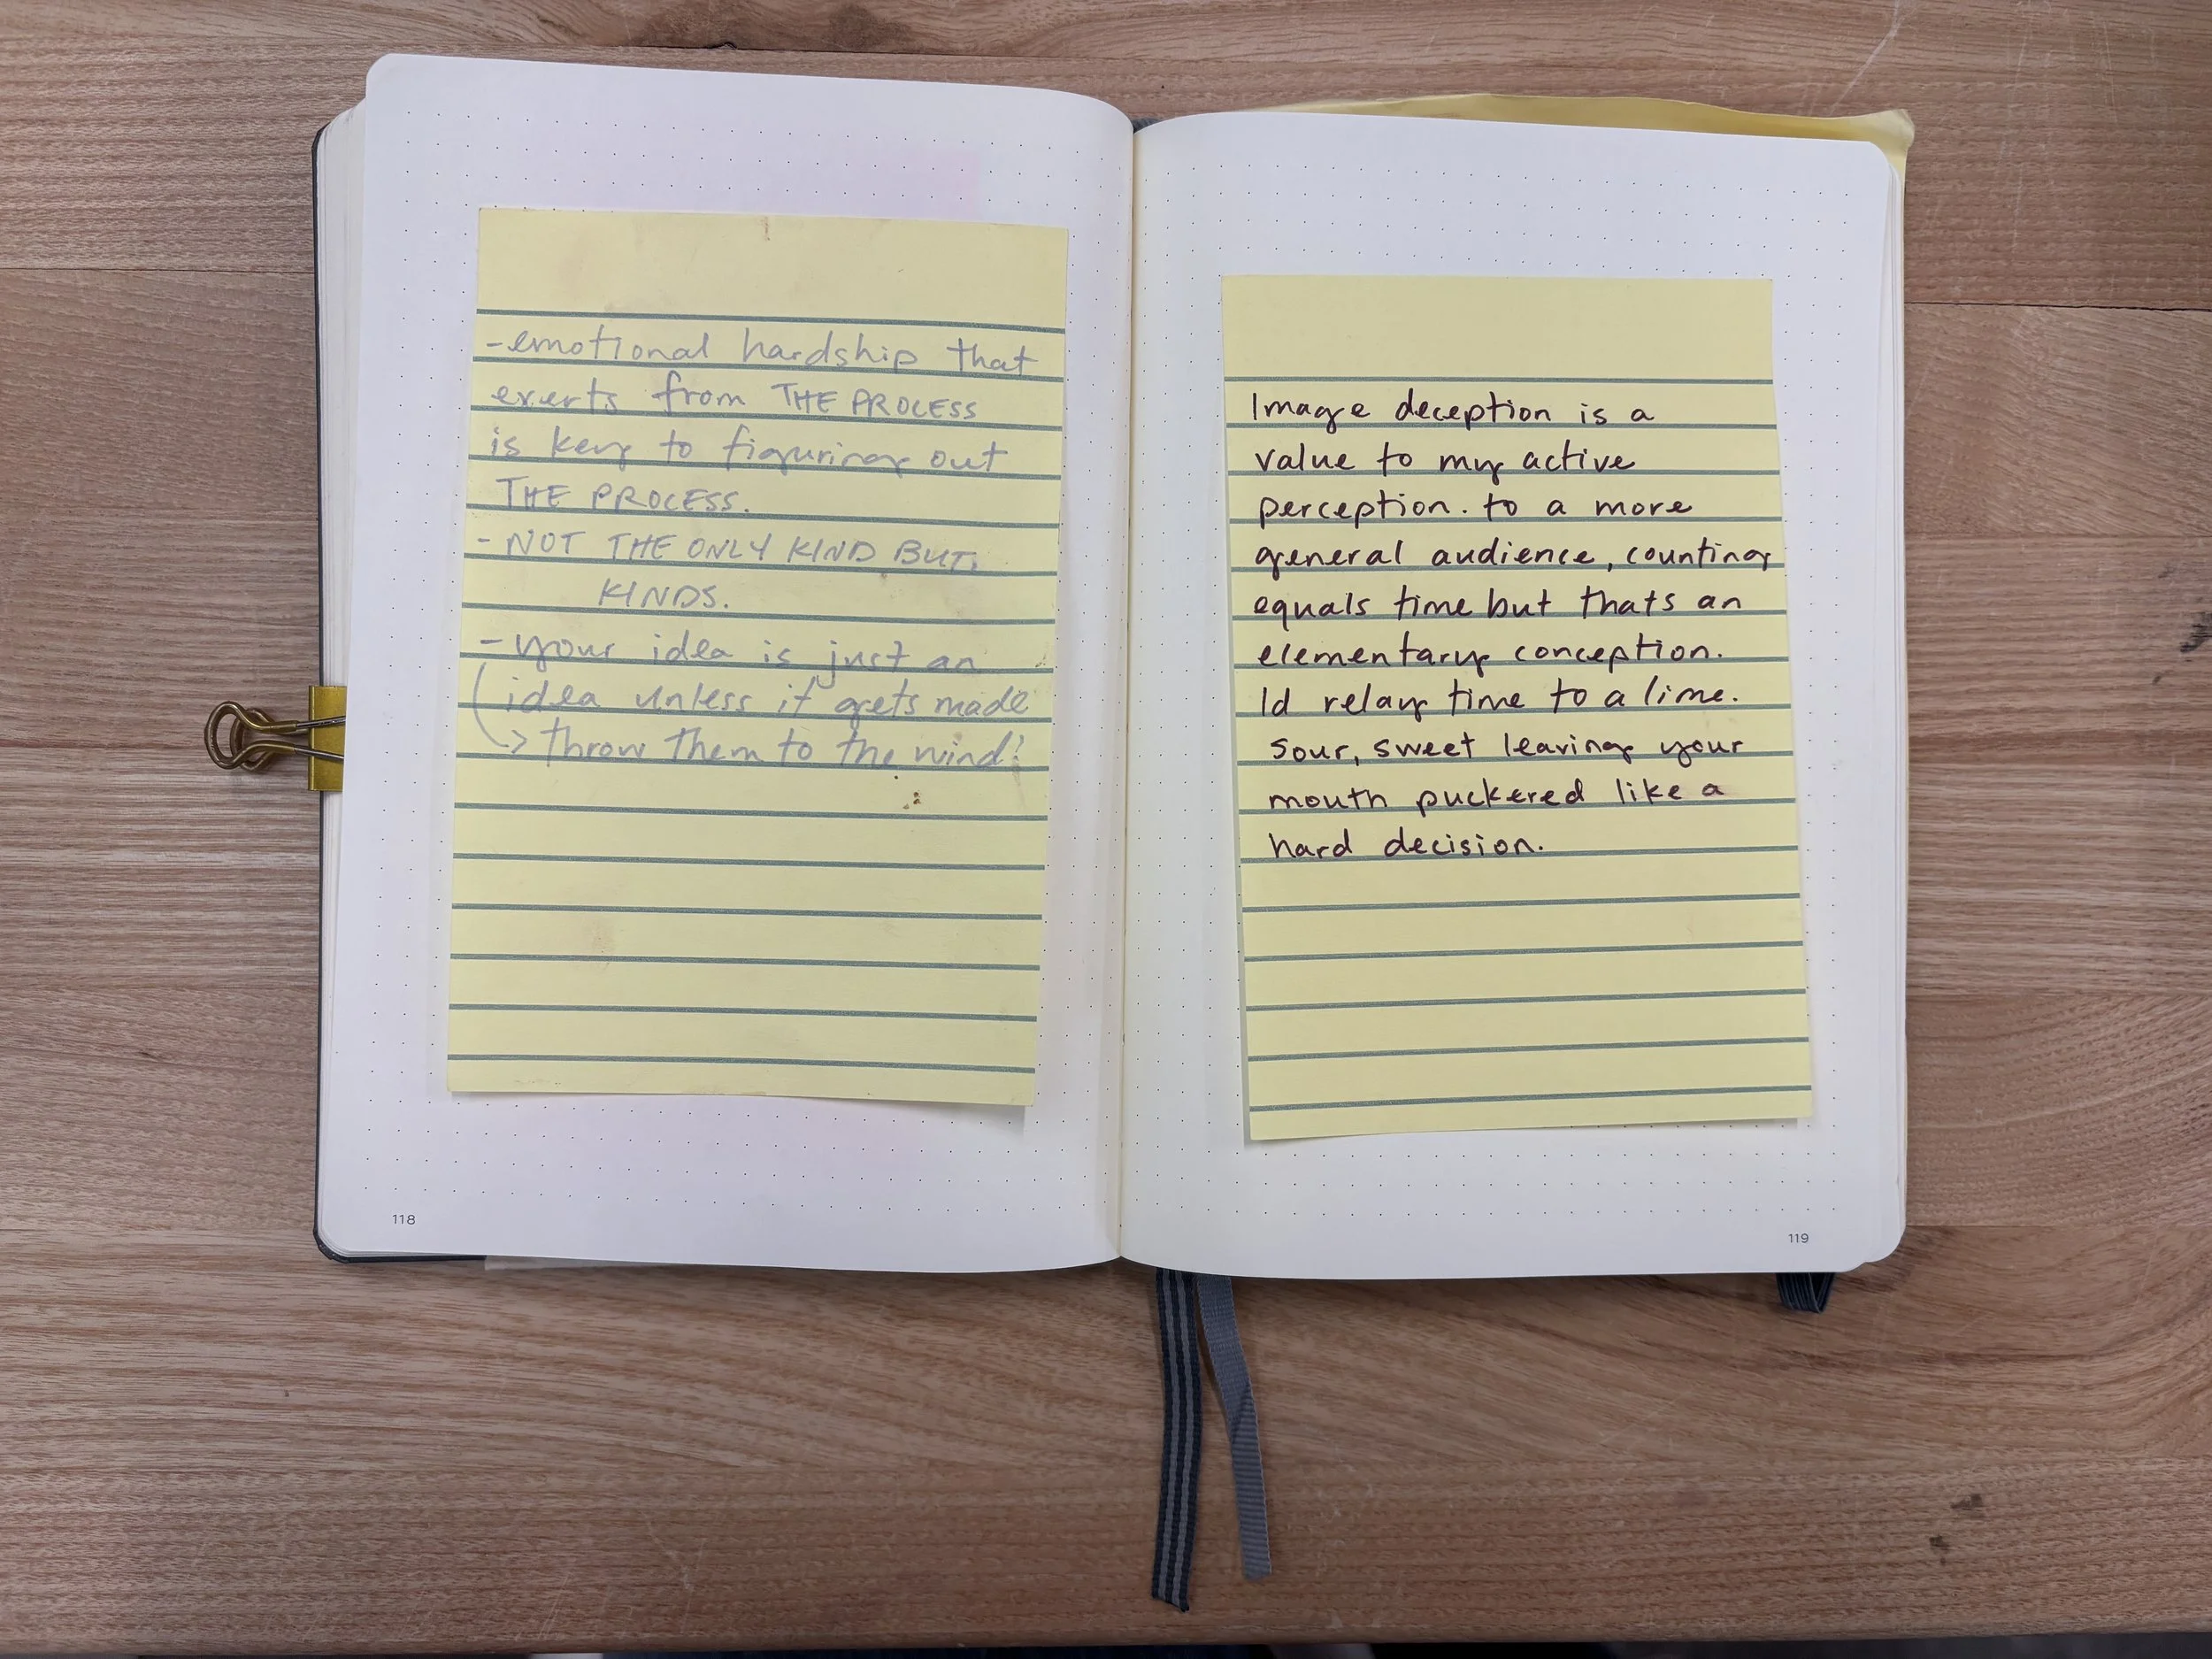 -emotional hardship that
exerts from THE PROCESS
is key to figuring out
THE PROCESS.
- NOT THE ONLY KIND BUT.
KINDS.
- your idea is just an
idea unless it gets made
-> throw them to the wind!
118
Image deception is a
value to my active
perception. to a more
general audience, counting
equals time but thats an
elementary conception.
Id relay time to a lime.
sour, sweet leaving your
mouth puckered like a
hard decision.
119